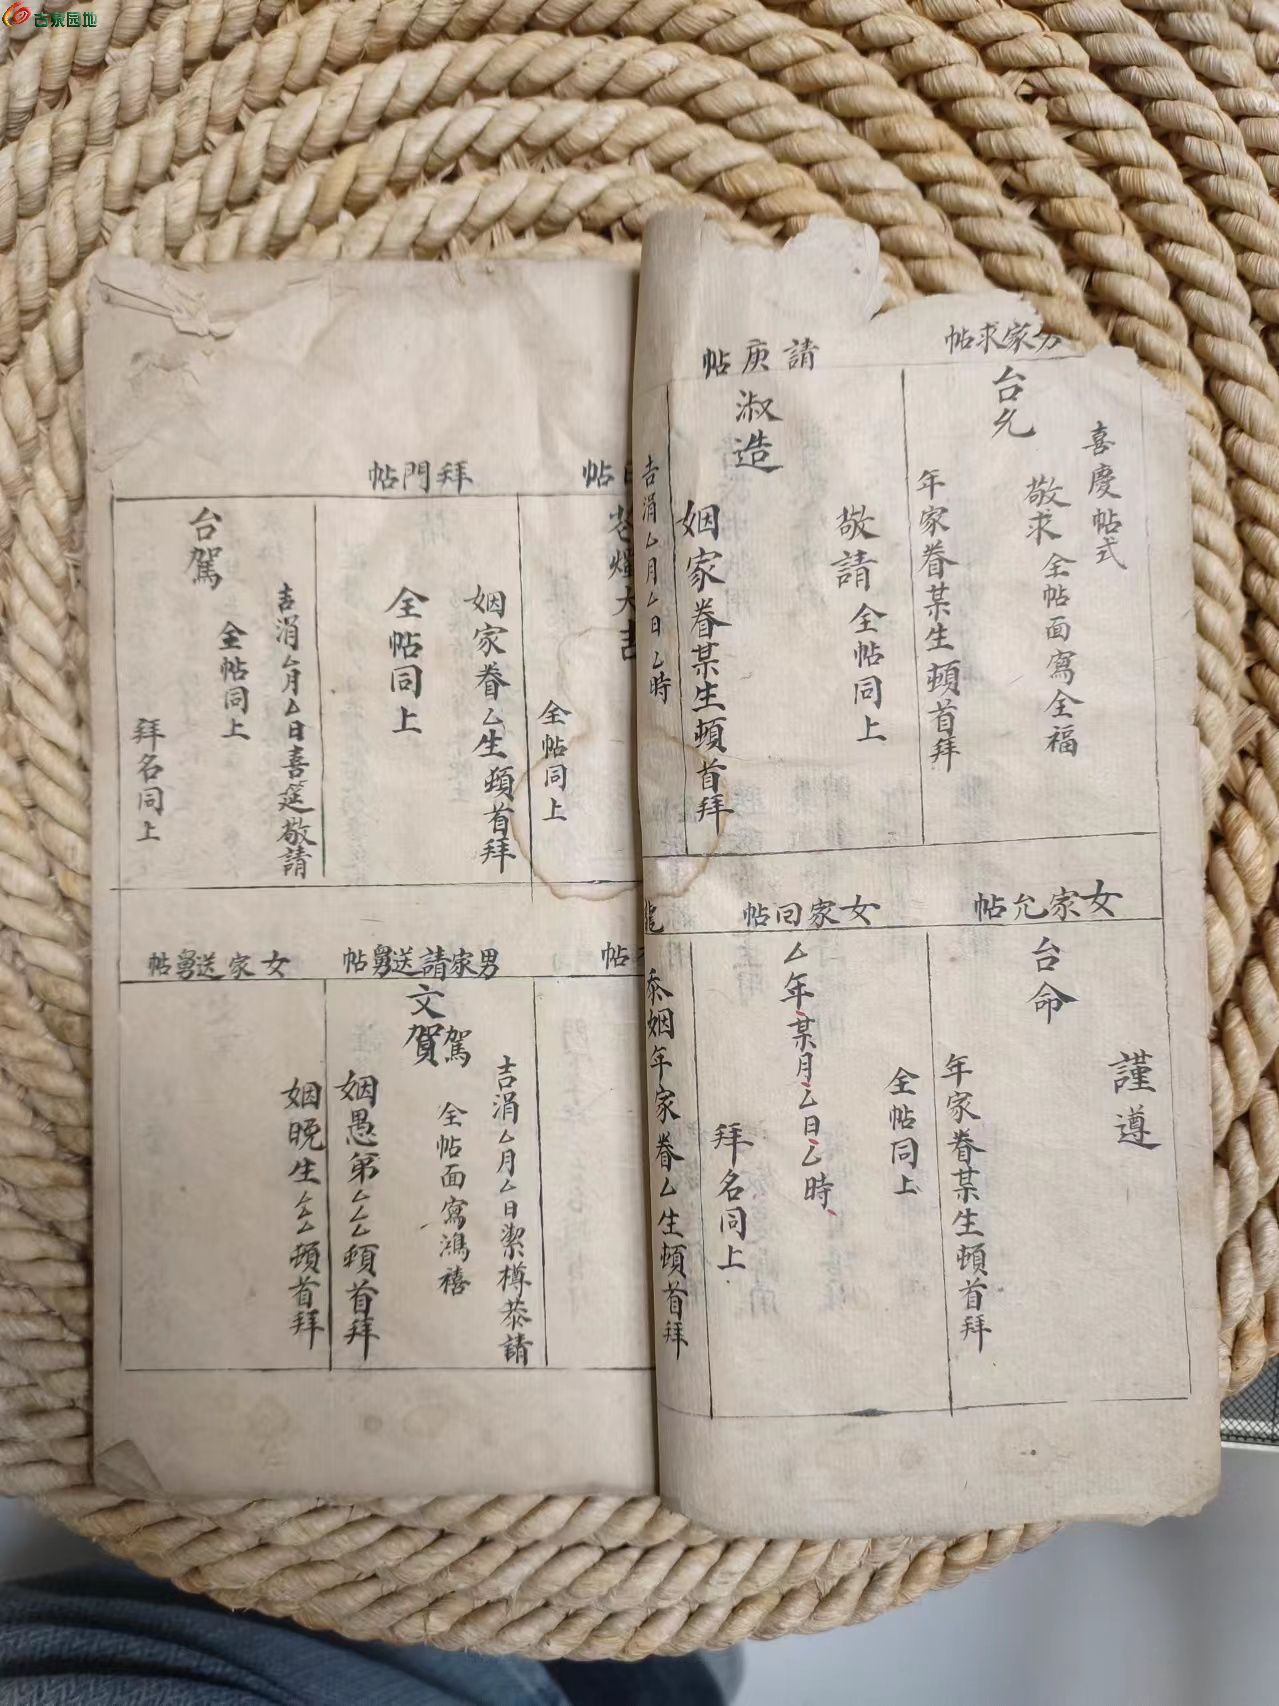 古泉园地
男家求帖
喜慶帖式
敬求
全帖面寫全福
台允
年家眷某生頓首拜
請庚帖
敬請
全帖同上
淑造
姻家眷某生頓首拜
吉涓厶月厶日厶時
女家允帖
謹遵
台命
年家眷某生頓首拜
女家囘帖
全帖同上
厶年某月厶日厶時
拜名同上
忝姻年家眷厶生頓首拜
帖
大吉
全帖同上
拜門帖
姻家眷厶生頓首拜
全帖同上
吉涓厶月厶日喜筵敬請
全帖同上
台駕
拜名同上
帖
男家請送舅帖
吉涓厶月厶日潔樽恭請
全帖面寫鴻禧
文駕
賀
姻愚弟厶厶頓首拜
女家送舅帖
姻晚生厶厶頓首拜